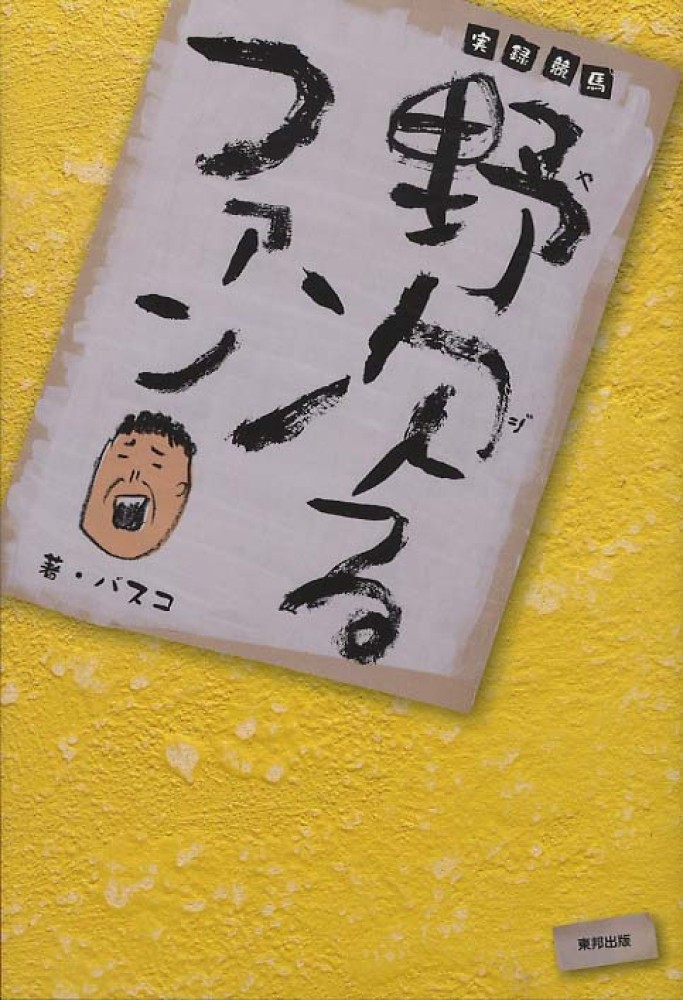 実録競馬
ヤジ
野次る
ファン
著・バスコ
東邦出版